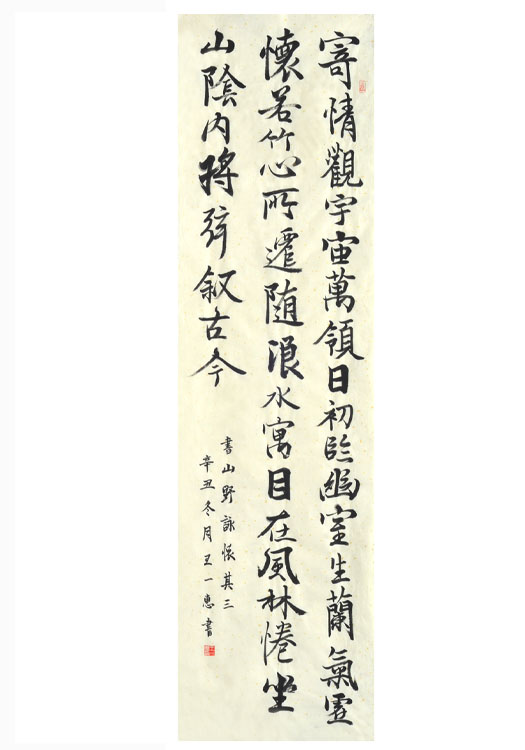 寄情觀宇宙萬領日初臨幽室生蘭氣虛
懷若竹心所遷随浪水寓目在風林惓坐
山陰內將弦叙古今
書山野詠懷其三
辛丑冬月王一惠書